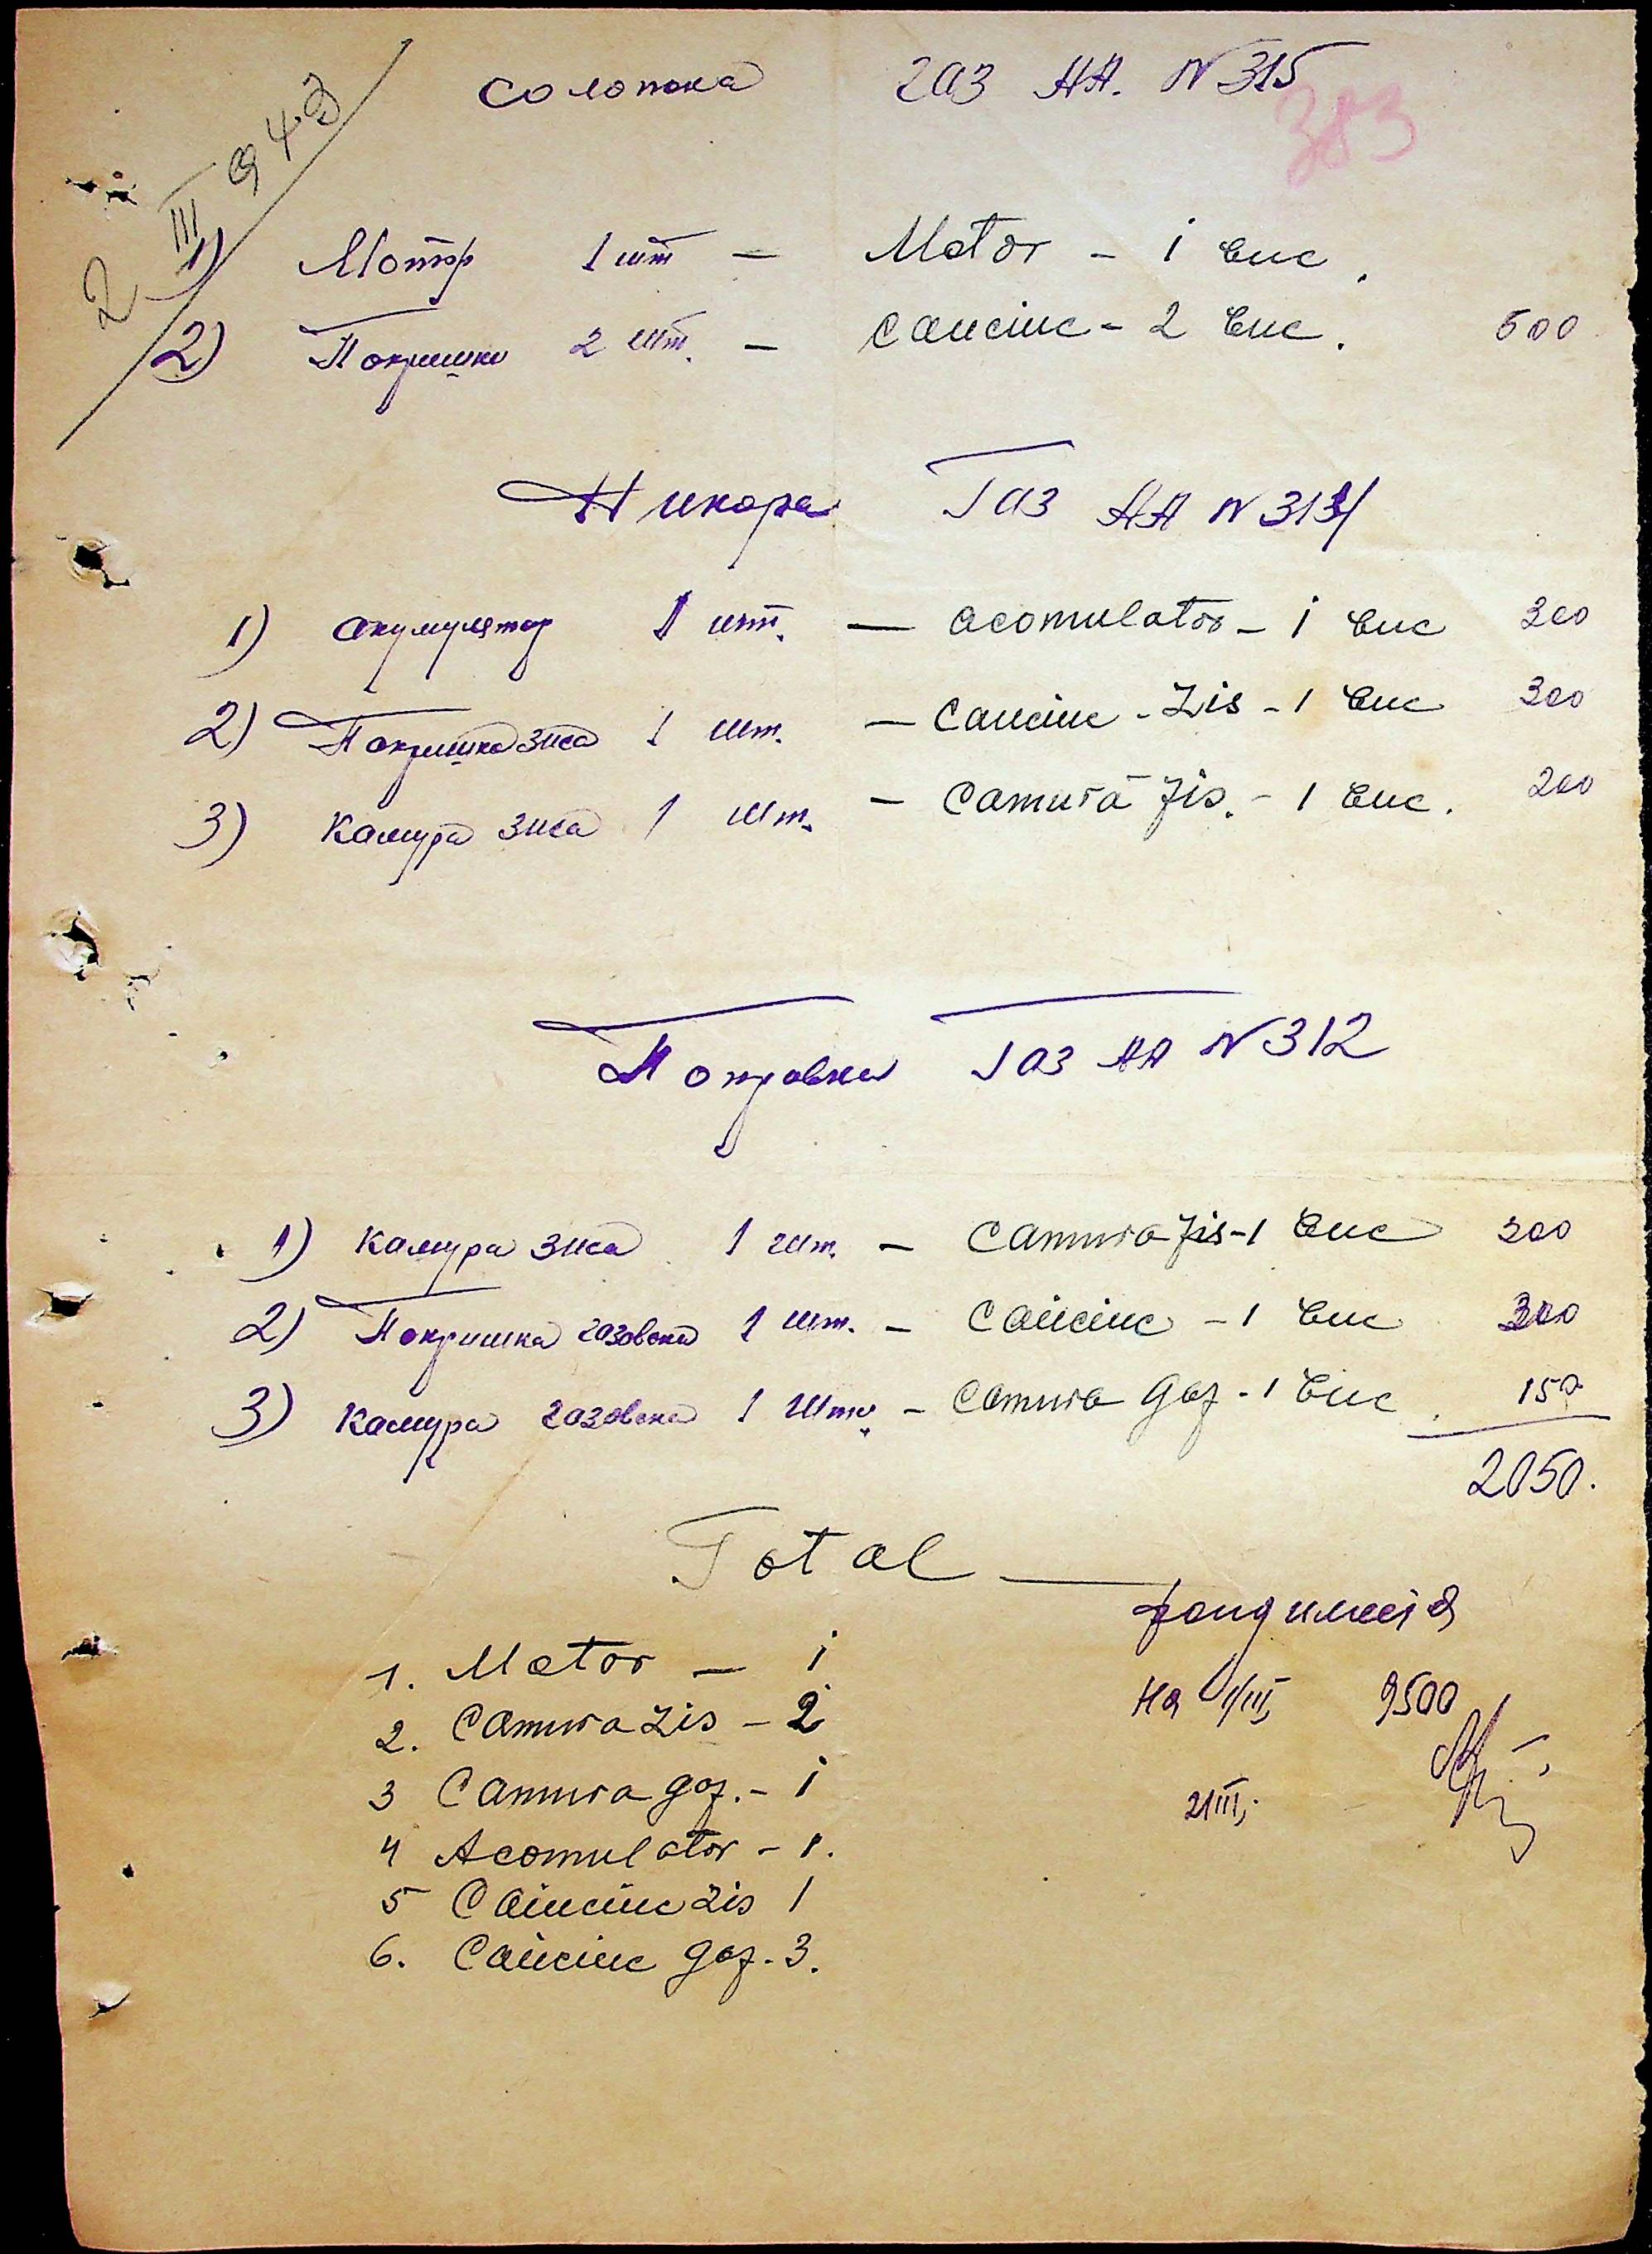 2 III 943
Солопока ГАЗ АА. N 315
383
1) Мотор 1 шт — Motor - 1 buc.
2) Покришки 2 шт. — Cauciuc - 2 buc. 600
Никора Газ АА N 313
1) акумулятор 1 шт. — acomulator - 1 buc 300
2) Покришка зиса 1 шт. — Cauciuc - Zis - 1 buc 300
3) Камура зиса 1 шт. — Camură Zis. - 1 buc. 200
Покровка Газ АА N 312
1) Камура зиса 1 шт. — Camura Zis - 1 buc 200
2) Покришка газовска 1 шт. — Cauciuc - 1 buc 300
3) Камура газовска 1 шт. — Camura gaz - 1 buc. 150
2050.
Total —
1. Motor — 1
2. Camura Zis - 2
На 1/III, 9500
3 Camura gaz. - 1
2/III,
4 Acomulator - 1.
5 Cauciuc Zis 1
6. Cauciuc gaz. 3.